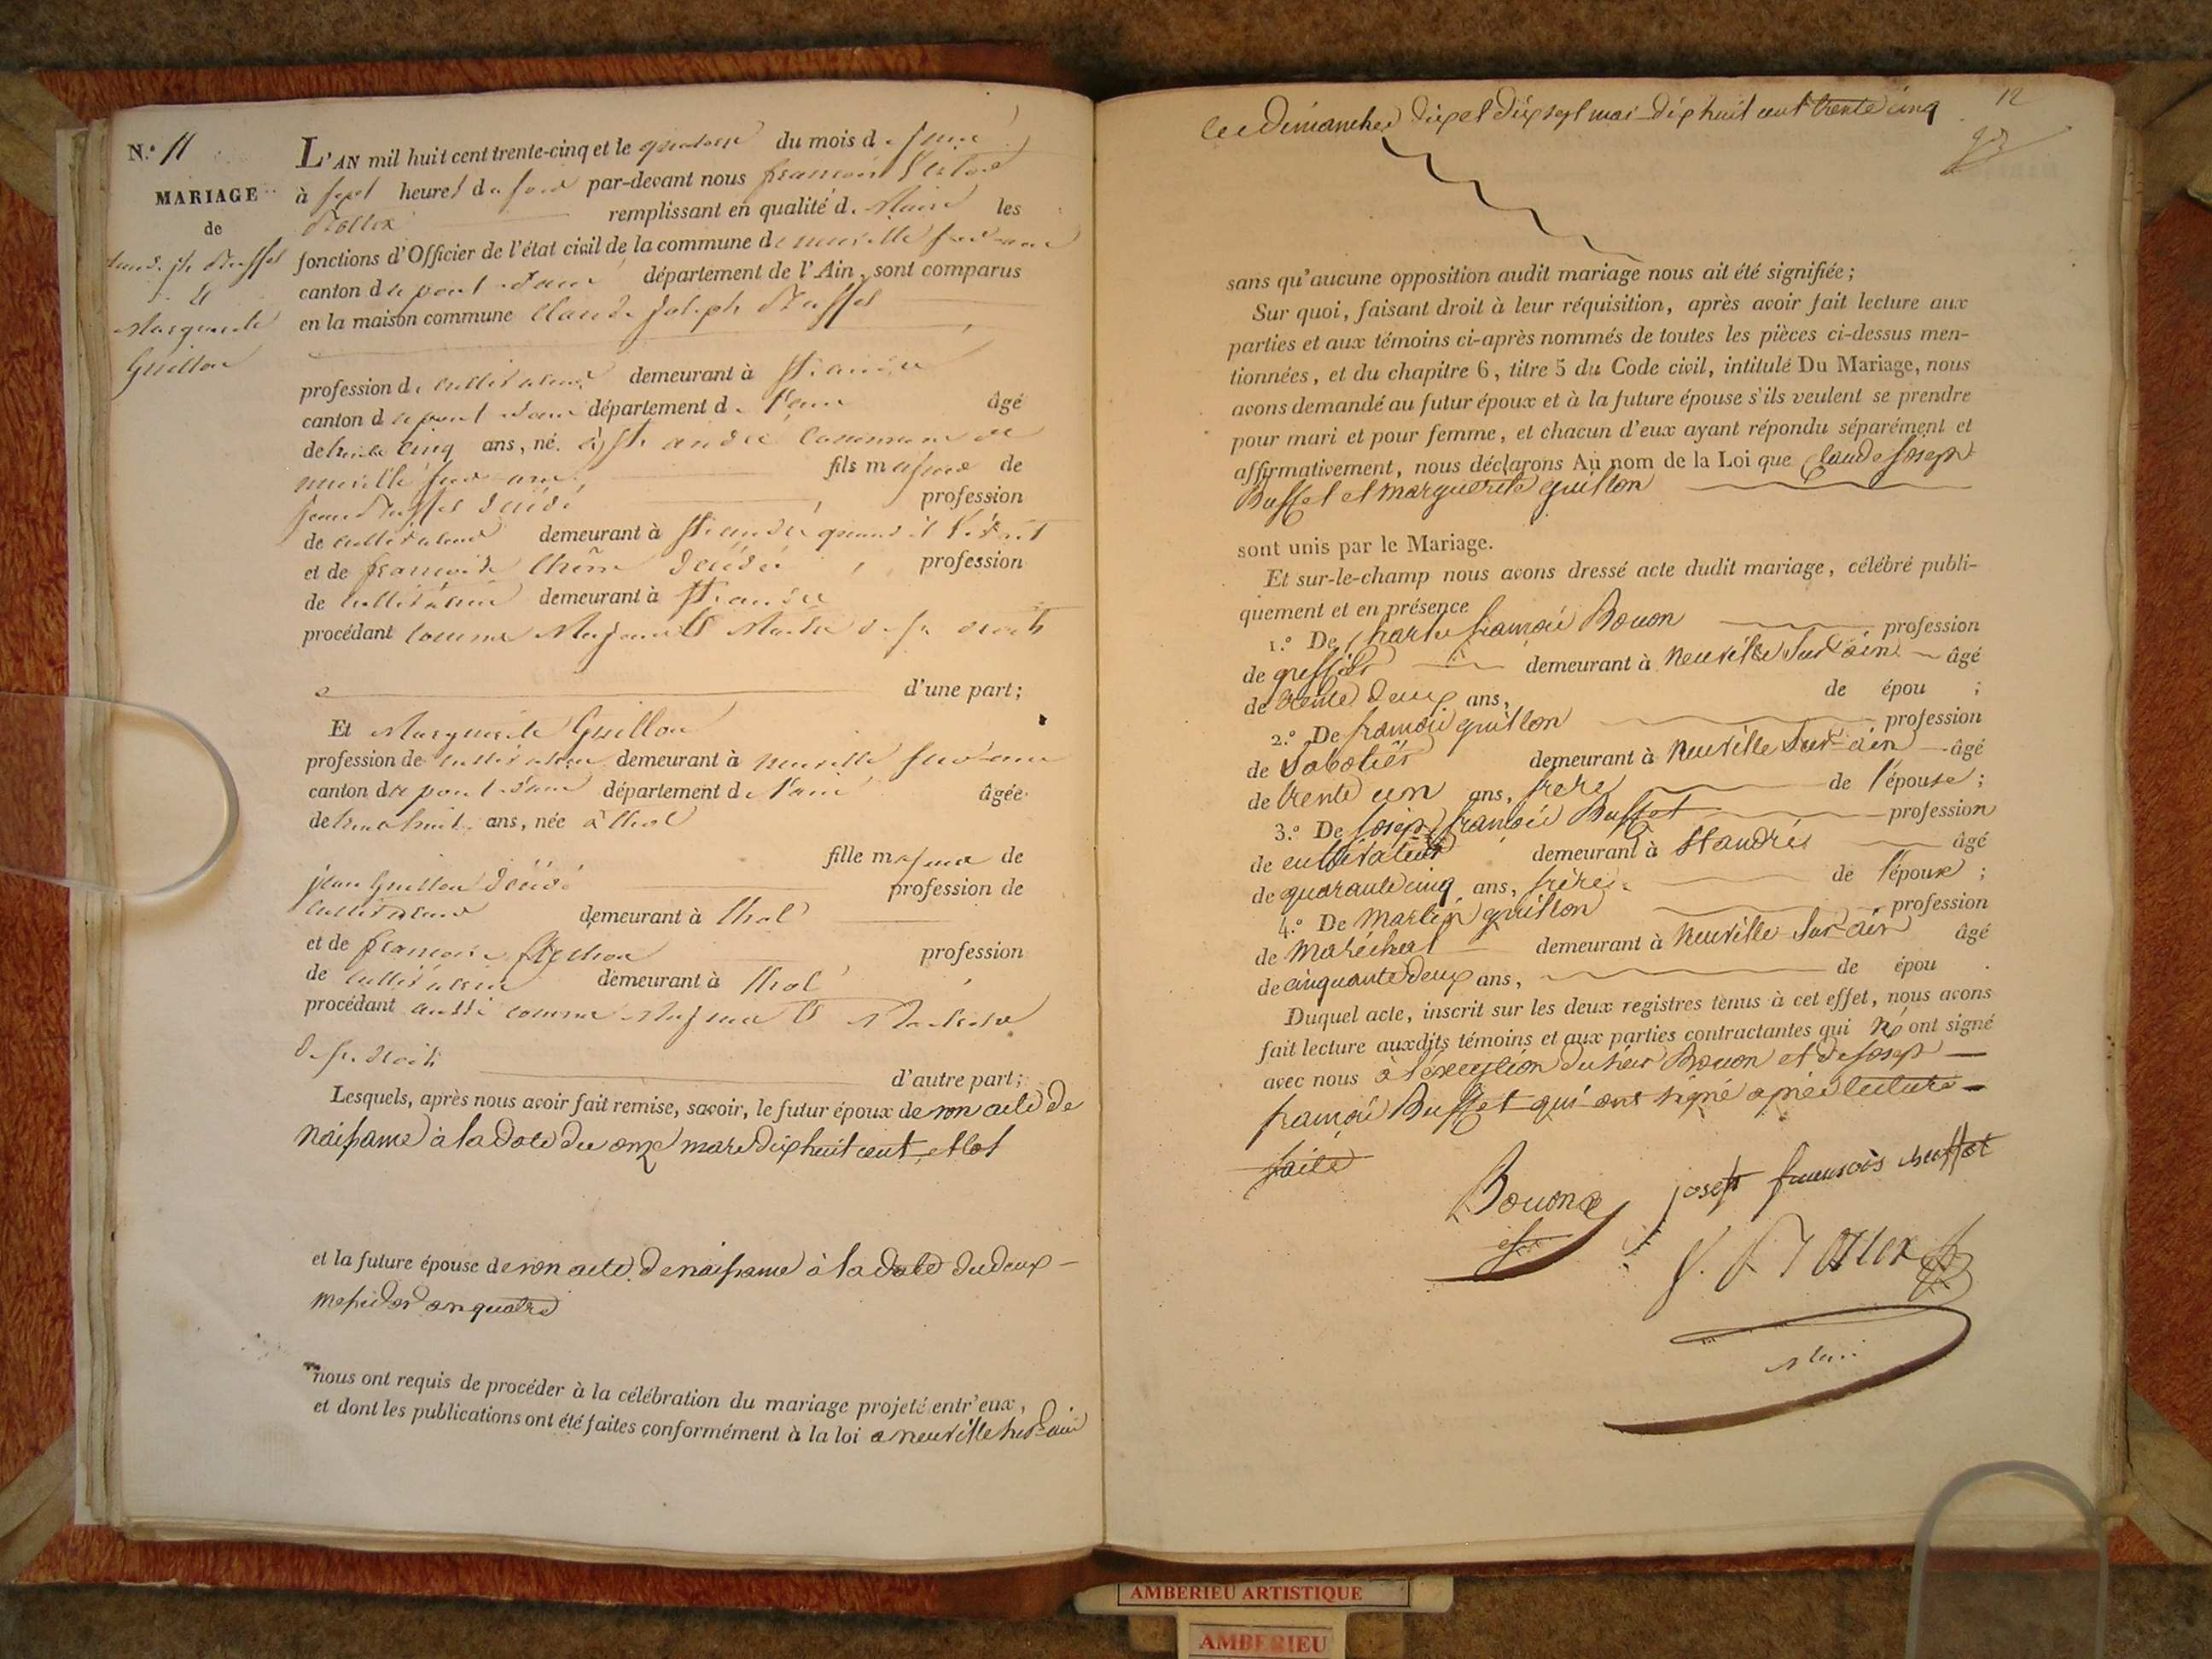 N.o 11
MARIAGE
de
Claude jh Buffet
&
Marguerite
Guillon
L'AN mil huit cent trente-cinq et le quatorze du mois de juin
à sept heures du soir par-devant nous françois Victor
remplissant en qualité de Maire les
fonctions d'Officier de l'état civil de la commune de neuville sur-ain
canton de pont d'ain département de l'Ain, sont comparus
en la maison commune Claude Joseph Buffet
profession de cultivateur demeurant à St. andré
canton de pont d'ain département de l'ain âgé
de trente cinq ans, né à St. andré commune de
neuville sur-ain fils majeur de
jean Buffet décédé profession
de cultivateur demeurant à St. andré quand il vivait
et de françoise décédée, profession
de cultivatrice demeurant à St. andré
procédant comme Majeur & Maître de ses droits
d'une part;
Et Marguerite Guillon
profession de cultivatrice demeurant à neuville sur-ain
canton de pont d'ain département de l'ain âgée
de trente huit ans, née à thol
fille majeure de
jean Guillon décédé profession de
cultivateur demeurant à thol
et de françoise profession
de cultivatrice demeurant à thol,
procédant aussi comme Majeure & Maitresse
de ses droits
d'autre part;
Lesquels, après nous avoir fait remise, savoir, le futur époux de son acte de
naissance à la date du onze mars dix huit cent, et lot
et la future épouse de son acte de naissance à la date du deux
messidor an quatre
nous ont requis de procéder à la célébration du mariage projeté entr'eux,
et dont les publications ont été faites conformément à la loi a neuville sur-ain
12
les Dimanches dix et dix sept mai dix huit cent trente cinq
sans qu'aucune opposition audit mariage nous ait été signifiée;
Sur quoi, faisant droit à leur réquisition, après avoir fait lecture aux
parties et aux témoins ci-après nommés de toutes les pièces ci-dessus men-
tionnées, et du chapitre 6, titre 5 du Code civil, intitulé Du Mariage, nous
avons demandé au futur époux et à la future épouse s'ils veulent se prendre
pour mari et pour femme, et chacun d'eux ayant répondu séparément et
affirmativement, nous déclarons Au nom de la Loi que Claude Joseph
Buffet et marguerite guillon
sont unis par le Mariage.
Et sur-le-champ nous avons dressé acte dudit mariage, célébré publi-
quement et en présence
1.o De Charle françois Bouon profession
de greffier demeurant à neuville sur ain âgé
de trente deux ans, de épou ;
2.o De françois guillon profession
de Sabotier demeurant à neuville sur-ain âgé
de trente un ans, frère de l'épouse;
3.o De Joseph françois Buffet profession
de cultivateur demeurant à St andré âgé
de quarante cinq ans, frère de l'époux;
4.o De Martin guillon profession
de Maréchal demeurant à neuville sur-ain âgé
de cinquante deux ans, de épou .
Duquel acte, inscrit sur les deux registres tenus à cet effet, nous avons
fait lecture auxdits témoins et aux parties contractantes qui n'ont signé
avec nous à l'exception du sieur Bouon et de Joseph
françois Buffet qui ont signé après lecture
faite
Bouon
joseph françois buffet
Maire
AMBERIEU ARTISTIQUE
AMBERIEU